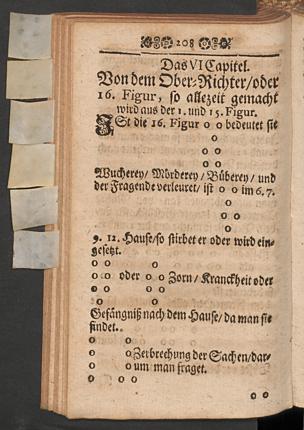 208
Das VI Capitel.
Von dem Ober-Richter/oder
16. Figur, so allezeit gemacht
wird aus der 1. und 15. Figur.
ISt die 16. Figur o o bedeutet sie
o o
o
o
Wucherey/ Mörderey/ Büberey/ und
der Fragende verleuret/ ist o o im 6. 7.
o
o
o
9. 12. Hause/so stirbet er oder wird ein-
gesetzt.
o o oder o o Zorn/ Kranckheit oder
o o
o o o
Gefängniß nach dem Hause/ da man sie
findet.
o o o Zerbrechung der Sachen/dar-
o o o um man fraget.
o o o
o o